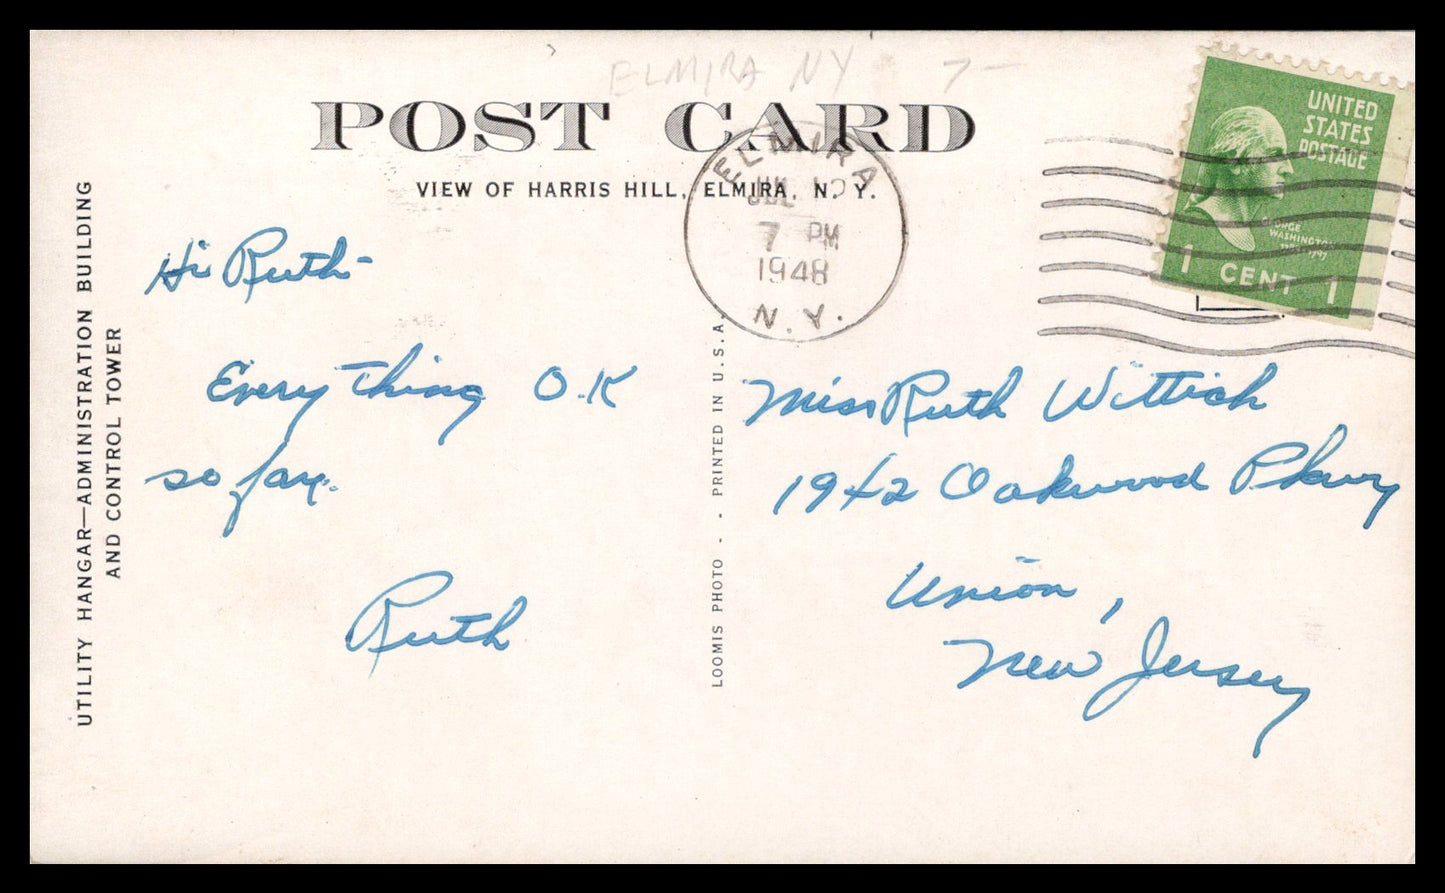 ELMIRA NY 7-
POST CARD
VIEW OF HARRIS HILL, ELMIRA, N. Y.
UTILITY HANGAR—ADMINISTRATION BUILDING
AND CONTROL TOWER
Hi Ruth-
Every thing O.K
so far.
Ruth
LOOMIS PHOTO - PRINTED IN U.S.A.
ELMIRA
JUL
7 PM
1948
N.Y.
UNITED
STATES
POSTAGE
GEORGE
WASHINGTON
1 CENT 1
Miss Ruth Wittich
1942 Oakwood Pkwy
Union,
New Jersey